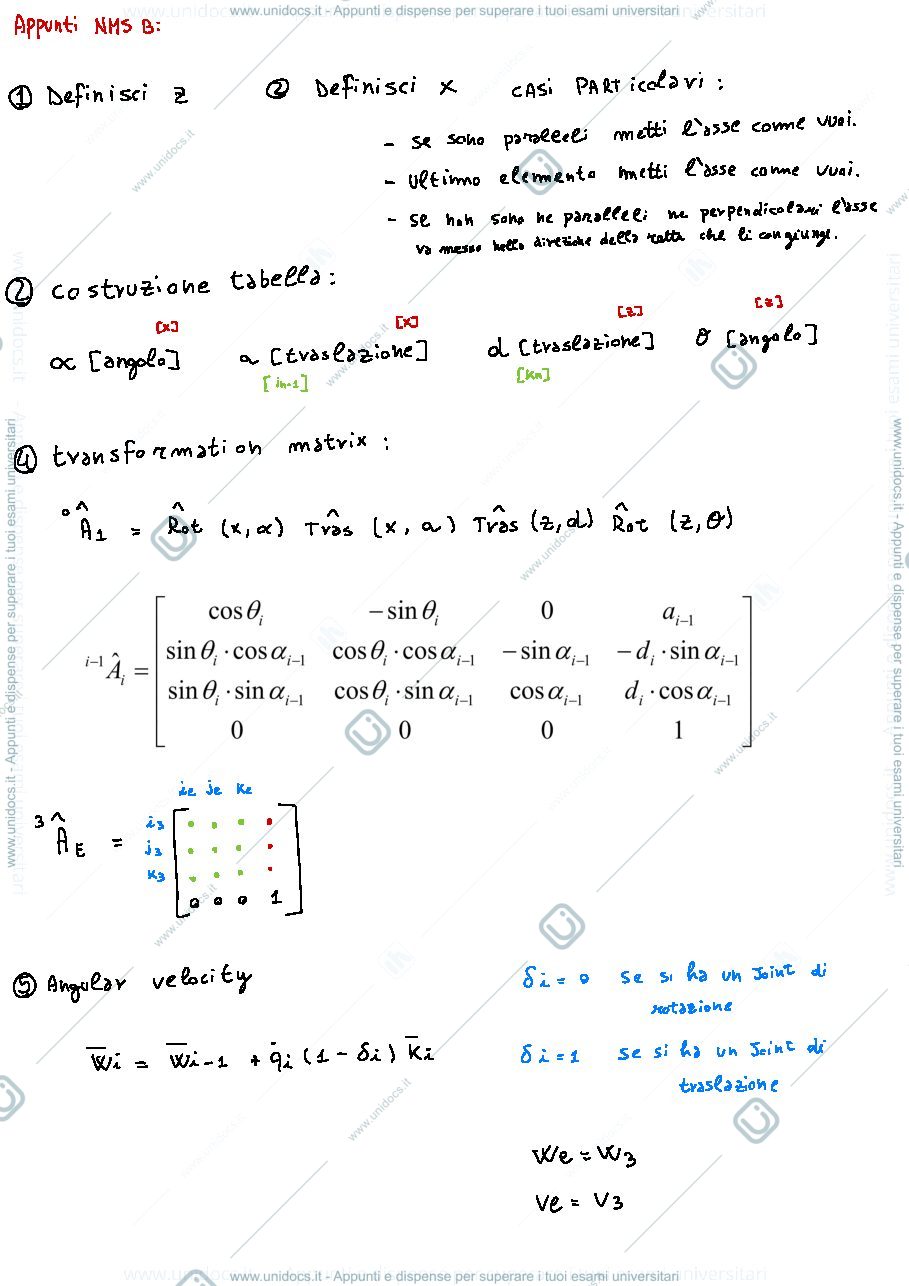 www.unidocs.it - Appunti e dispense per superare i tuoi esami universitari
Appunti NMS B:
① Definisci z
② Definisci x   casi PARTicolari :
- se sono paralleli metti l'asse come vuoi.
- Ultimo elemento metti l'asse come vuoi.
- se non sono ne paralleli ne perpendicolari l'asse
va messo nella direzione della retta che li congiunge.
② costruzione tabella :
[x] [x] [z] [z]
α [angolo] a [traslazione] d [traslazione] θ [angolo]
[in-1] [Kn]
④ transformation matrix :
⁰Â₁ = R̂ot (x, α) Trâs (x, a) Trâs (z, d) R̂ot (z, θ)
cos θᵢ   − sin θᵢ   0   aᵢ₋₁
ⁱ⁻¹Âᵢ = sin θᵢ · cos αᵢ₋₁   cos θᵢ · cos αᵢ₋₁   − sin αᵢ₋₁   − dᵢ · sin αᵢ₋₁
sin θᵢ · sin αᵢ₋₁   cos θᵢ · sin αᵢ₋₁   cos αᵢ₋₁   dᵢ · cos αᵢ₋₁
0   0   0   1
ie je ke
³ÂE =
i3 . . . .
j3 . . . .
k3 . . . .
0 0 0 1
⑤ Angular velocity
w̅i = w̅i-1 + q̇i (1 - δi) k̅i
δi = 0 se si ha un Joint di
rotazione
δi = 1 se si ha un Joint di
traslazione
We = W3
Ve = V3
www.unidocs.it - Appunti e dispense per superare i tuoi esami universitari